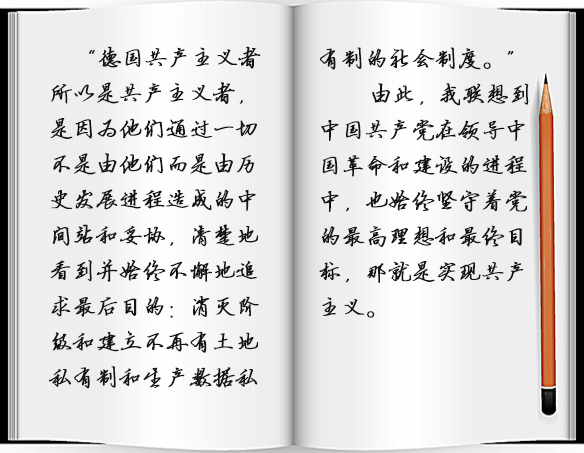 “德国共产主义者
所以是共产主义者，
是因为他们通过一切
不是由他们而是由历
史发展进程造成的中
间站和妥协，清楚地
看到并始终不懈地追
求最后目的：消灭阶
级和建立不再有土地
私有制和生产数据私
有制的社会制度。”
由此，我联想到
中国共产党在领导中
国革命和建设的进程
中，也始终坚守着党
的最高理想和最终目
标，那就是实现共产
主义。